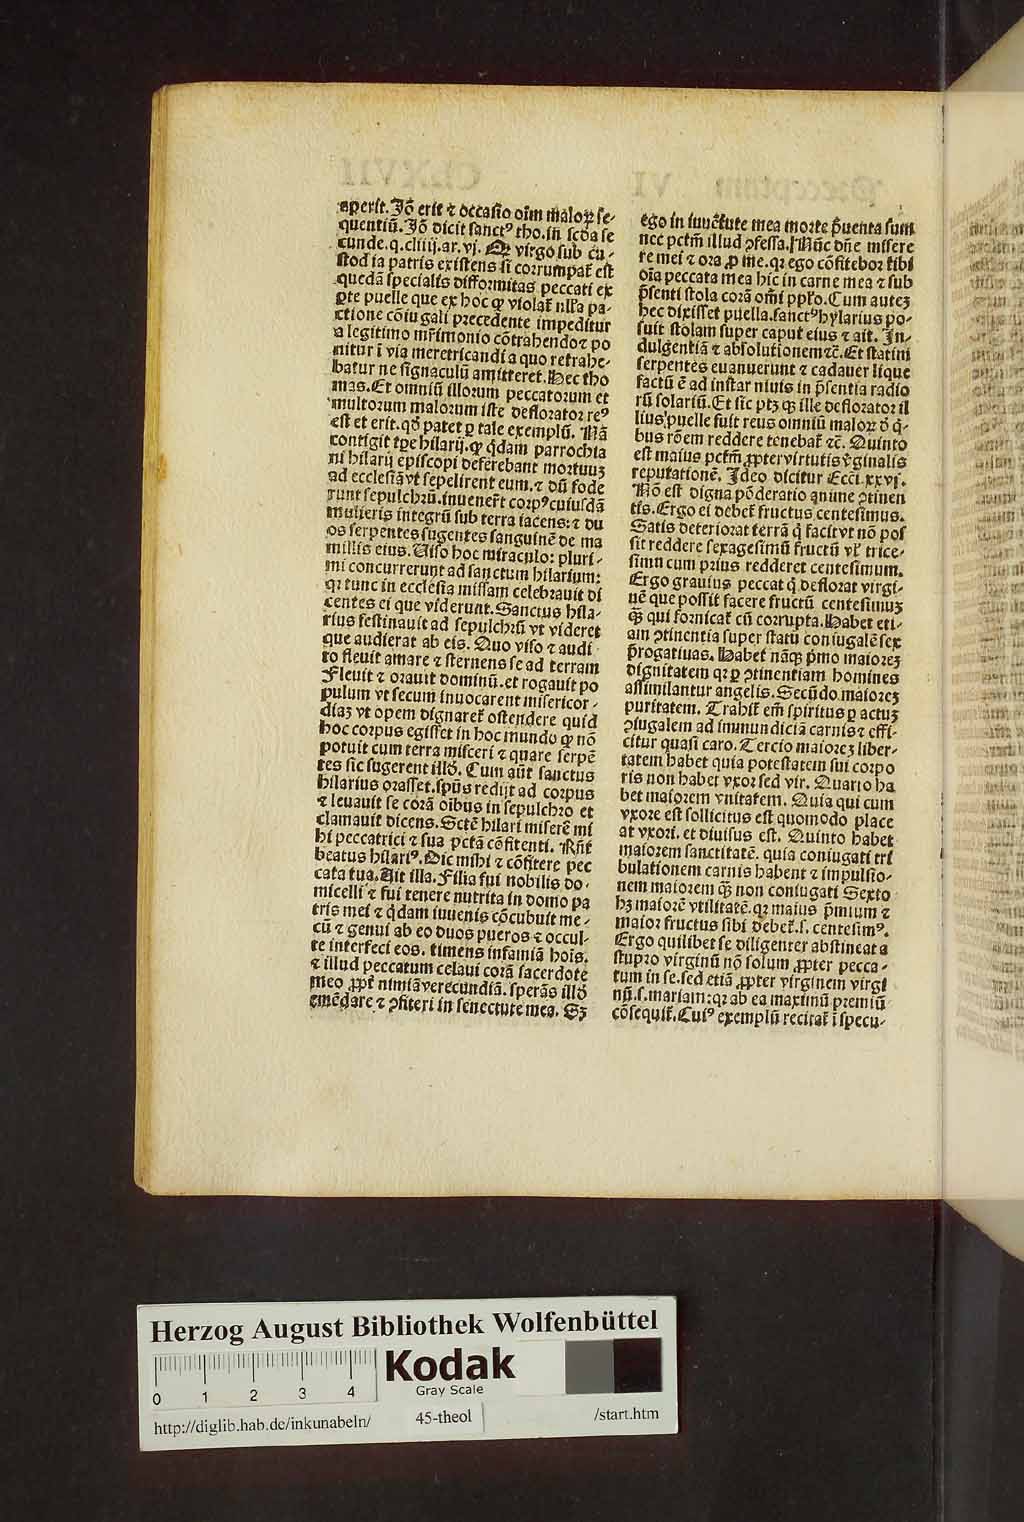 aperit. Jõ erit ⁊ occasio oĩm maloꝝ se-
quentiũ. Jõ dicit sanctꝰ tho. in scd̃a se
cunde. q. cliiij. ar. vj. Qꝫ virgo sub cu-
stodia patris existens si corrumpat̃ est
quedã specialis difformitas peccati ex
ꝑte puelle que ex hoc ꝙ violat̃ nl̃la pa-
ctione cõiugali precedente impeditur
a legitimo mr̃imonio cõtrahendo ⁊ po
nitur ĩ via meretricandi a quo retrahe-
batur ne signaculũ amitteret. Hec tho
mas. Et omniũ illorum peccatorum et
multorum malorum iste deflorator reꝰ
est et erit. qd̃ patet ꝑ tale exemplũ. Nã
contigit tp̃e hilarij. ꝙ q̃dam parrochia
ni hilarij episcopi deferebant mortuuꝫ
ad ecclesiã vt sepelirent eum. ⁊ dũ fode
runt sepulchrũ. inuener̃t corpꝰ cuiusdã
mulieris integrũ sub terra iacens: ⁊ du
os serpentes sugentes sanguinẽ de ma
millis eius. Uiso hoc miraculo: pluri-
mi concurrerunt ad sanctum hilarium:
qꝛ tunc in ecclesia missam celebrauit di
centes ei que viderunt. Sanctus hila-
rius festinauit ad sepulchrũ vt videret
que audierat ab eis. Quo viso ⁊ audi
to fleuit amare ⁊ sternens se ad terram
Fleuit ⁊ orauit dominũ. et rogauit po
pulum vt secum inuocarent misericor-
diaꝫ vt opem dignaret̃ ostendere quid
hoc corpus egisset in hoc mundo ꝙ nõ
potuit cum terra misceri ⁊ quare serpẽ
tes sic sugerent illõ. Cum aũt sanctus
hilarius orasset. sp̃us redijt ad corpus
⁊ leuauit se corã oĩbus in sepulchro et
clamauit dicens. Sctẽ hilari miserẽ mi
hi peccatrici ⁊ sua pctã cõfitenti. Rñt
beatus hilariꝰ. Dic mihi ⁊ cõfitere pec
cata tua. Ait illa. Filia fui nobilis do-
micelli ⁊ fui tenere nutrita in domo pa
tris mei ⁊ q̃dam iuuenis cõcubuit me-
cũ ⁊ genui ab eo duos pueros ⁊ occul-
te interfeci eos. timens infamiã hoĩs.
⁊ illud peccatum celaui corã sacerdote
meo ꝓpt̃ nimiã verecundiã. sperãs illõ
emẽdare ⁊ ꝯfiteri in senectute mea. Sꝫ
ego in iuuẽtute mea morte p̃uenta sum
nec pctm̃ illud ꝯfessa. Nũc dñe misere
re mei ⁊ ora ꝓ me. qꝛ ego cõfitebor tibi
oĩa peccata mea hic in carne mea ⁊ sub
p̃senti stola corã om̃i pp̃lo. Cum auteꝫ
hec dixisset puella. sanctꝰ hylarius po-
suit stolam super caput eius ⁊ ait. In-
dulgentiã ⁊ absolutionem ⁊c̃. Et statim
serpentes euanuerunt ⁊ cadauer lique
factũ ẽ ad instar niuis in p̃sentia radio
rũ solariũ. Et sic ptꝫ ꝙ ille deflorator il
lius puelle fuit reus omniũ maloꝝ õ q̃-
bus rõem reddere tenebat̃ ⁊c̃. Quinto
est maius pctm̃ ꝓpter virtutis ṽginalis
reputationẽ. Ideo dicitur Ecci. xxvj.
Nõ est digna põderatio añime ꝯtinen
tis. Ergo ei debet̃ fructus centesimus.
Satis deteriorat terrã q̃ facit vt nõ pos
sit reddere sexagesimũ fructũ vl̃ trice-
simũ cum prius redderet centesimum.
Ergo grauius peccat q̃ deflorat virgi-
nẽ que possit facere fructũ centesimuꝫ
ꝙ̃ qui fornicat̃ cũ corrupta. Habet eti-
am ꝯtinentia super statũ coniugalẽ sex
p̃rogatiuas. Habet nãqꝫ p̃mo maioreꝫ
dignitatem qꝛ ꝑ ꝯtinentiam homines
assimilantur angelis. Secũdo maioreꝫ
puritatem. Trahit̃ em̃ spiritus ꝑ actuꝫ
ꝯiugalem ad inmundiciã carnis ⁊ effi-
citur quasi caro. Tercio maioreꝫ liber-
tatem habet quia potestatem sui corpo
ris non habet vxor sed vir. Quarto ha
bet maiorem vnitatem. Quia qui cum
vxore est sollicitus est quomodo place
at vxori. et diuisus est. Quinto habet
maiorem sanctitatẽ. quia coniugati tri
bulationem carnis habent ⁊ impulsio-
nem maiorem ꝙ̃ non coniugati Sexto
hꝫ maiorẽ vtilitatẽ. qꝛ maius p̃mium ⁊
maior fructus sibi debet̃. s. centesimꝰ.
Ergo quilibet se diligenter abstineat a
stupro virginũ nõ solum ꝓpter pecca-
tum in se. sed etiã ꝓpter virginem virgi
nũ. s. mariam: qꝛ ab ea maximũ premiũ
cõsequit̃. Cuiꝰ exemplũ recitat̃ ĩ specu-
Herzog August Bibliothek Wolfenbüttel
Kodak
Gray Scale
0 1 2 3 4
http://diglib.hab.de/inkunabeln/ 45-theol /start.htm